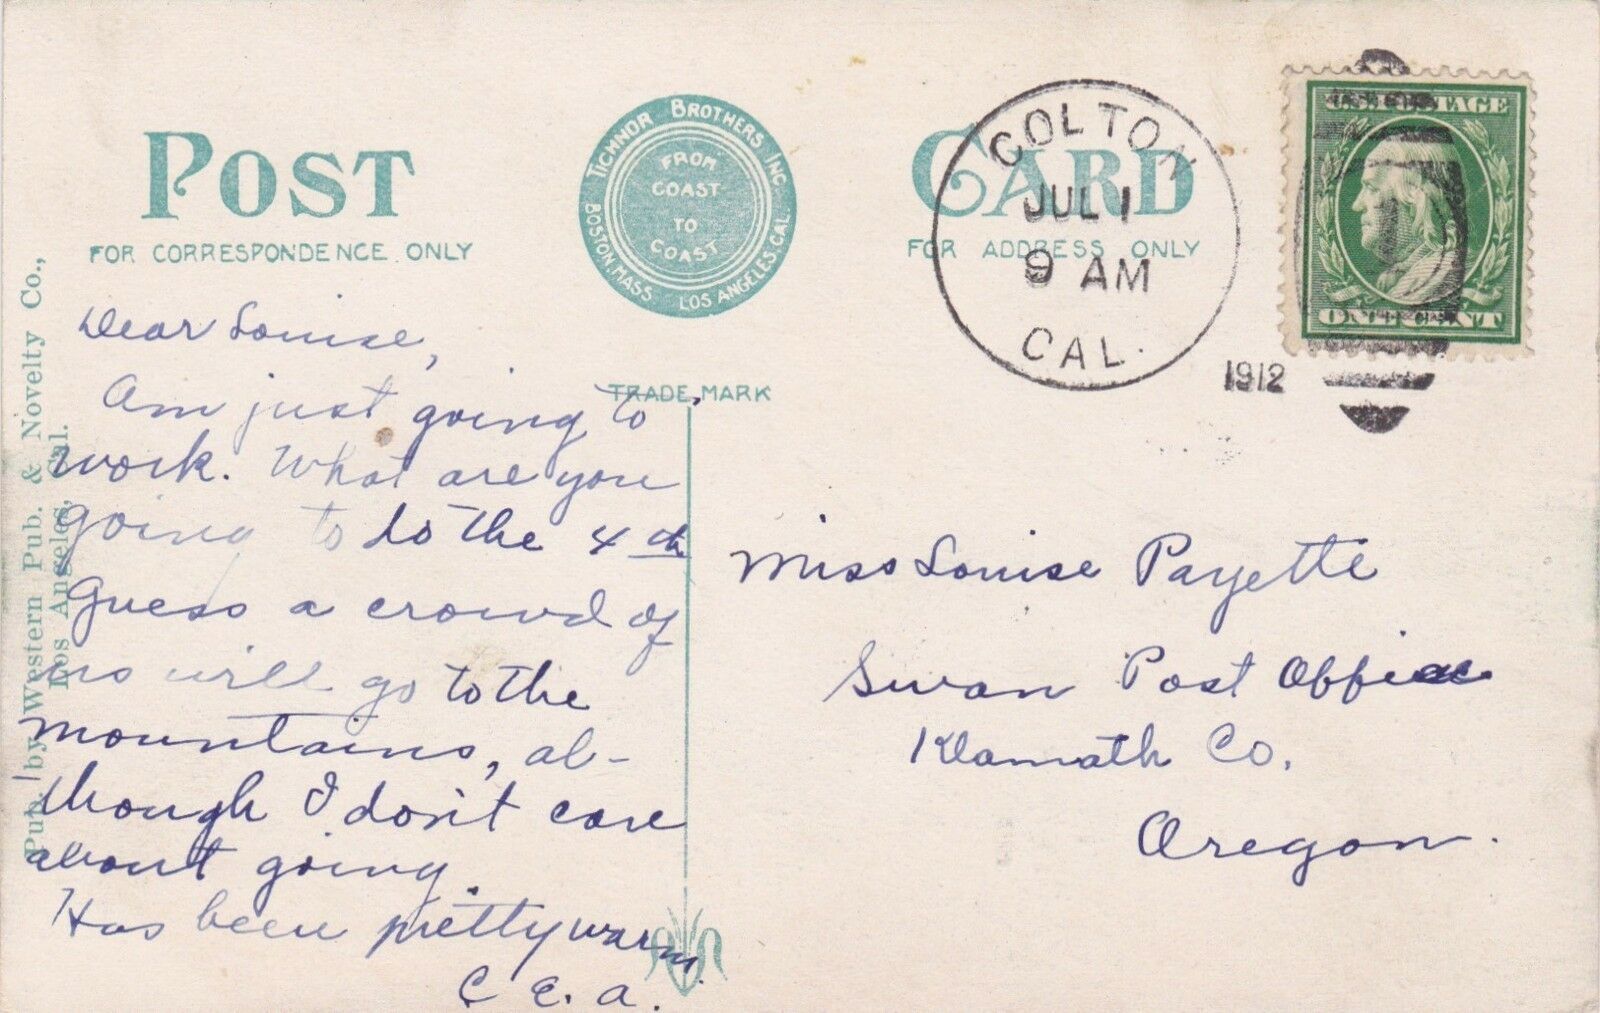 POST CARD
FOR CORRESPONDENCE ONLY
FOR ADDRESS ONLY
TICHNOR BROTHERS INC.
BOSTON, MASS. LOS ANGELES, CAL.
FROM
COAST
TO
COAST
TRADE MARK
COLTON
JUL 1
9 AM
CAL.
1912
U.S. POSTAGE
ONE CENT
Pub. by Western Pub. & Novelty Co.,
Los Angeles, Cal.
Dear Louise,
Am just going to
work. What are you
going to do the 4th
Guess a crowd of
us will go to the
mountains, al-
though I don't care
about going.
Has been pretty warm
C. E. A.
Miss Louise Payette
Swan Post Office
Klamath Co.
Oregon.